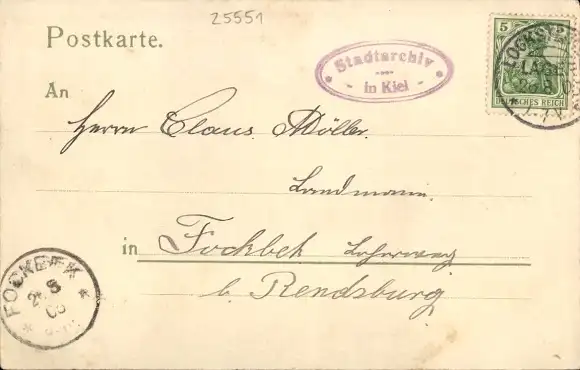 25551
Postkarte.
Stadtarchiv
in Kiel
5
DEUTSCHES REICH
LOCKSTEDT
LAGER
An
Herrn Claus Möller.
Landmann.
in Fockbek Loherweg
b. Rendsburg
FOCKBEK
8